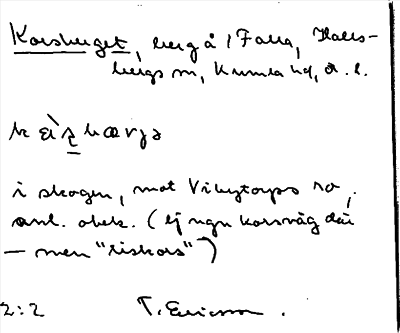 Korsberget, berg å 1 Falla, Halls-
bergs sn, Kumla hd, Ö. l.
i skogen, mot Vibytorps ro,
anl. obek. (Ej ngn korsväg där
— men "riskors")
2:2 T. Ericsson.